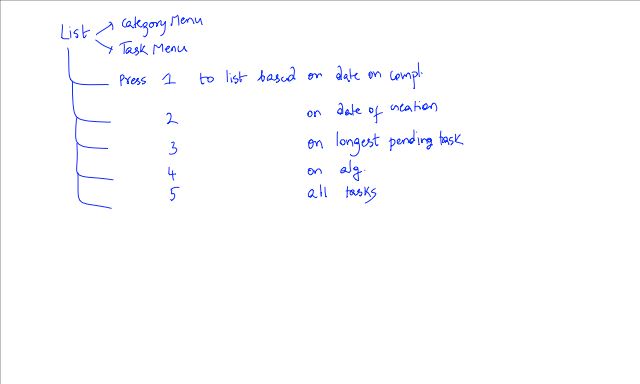 List
Category Menu
Task Menu
Press 1 to list based on date on compl.
2 on date of creation
3 on longest pending task
4 on alg.
5 all tasks